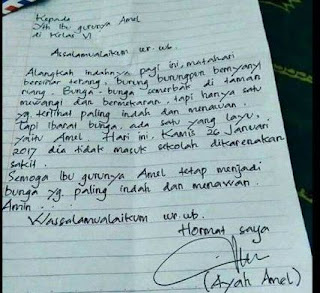 Kepada
Yth Ibu gurunya Amel
di Kelas VI
Assalamualaikum wr. wb.
Alangkah indahnya pagi ini, matahari
bersinar terang, burung burungpun bernyanyi
riang. Bunga-bunga semerbak di taman
mewangi dan bermekaran, tapi hanya satu
yg terlihat paling indah dan menawan.
Tapi ibarat bunga, ada satu yang layu,
yaitu Amel. Hari ini, Kamis 26 Januari
2017 dia tidak masuk sekolah dikarenakan
sakit.
Semoga Ibu gurunya Amel tetap menjadi
bunga yg. paling indah dan menawan.
Amin . . .
Wassalamualaikum wr. ub.
Hormat saya
(Ayah Amel)